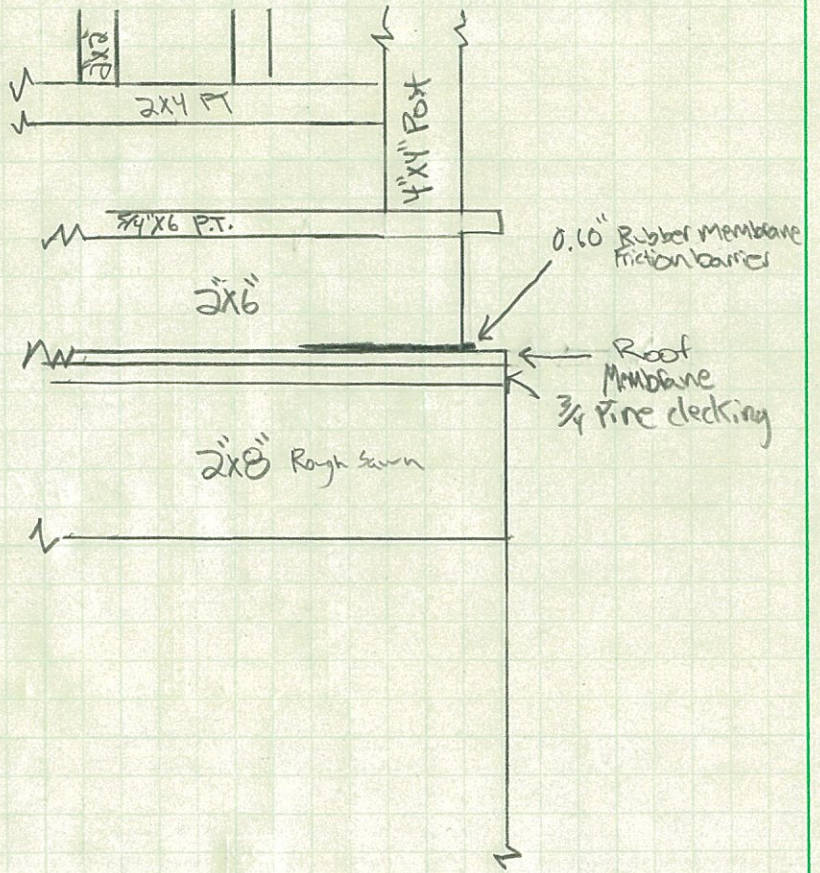 2x2
2x4 PT
4"x4" Post
5/4"x6 P.T.
0.60" Rubber Membrane
Friction barrier
2"x6"
Roof
Membrane
3/4 Pine decking
2"x8" Rough Sawn